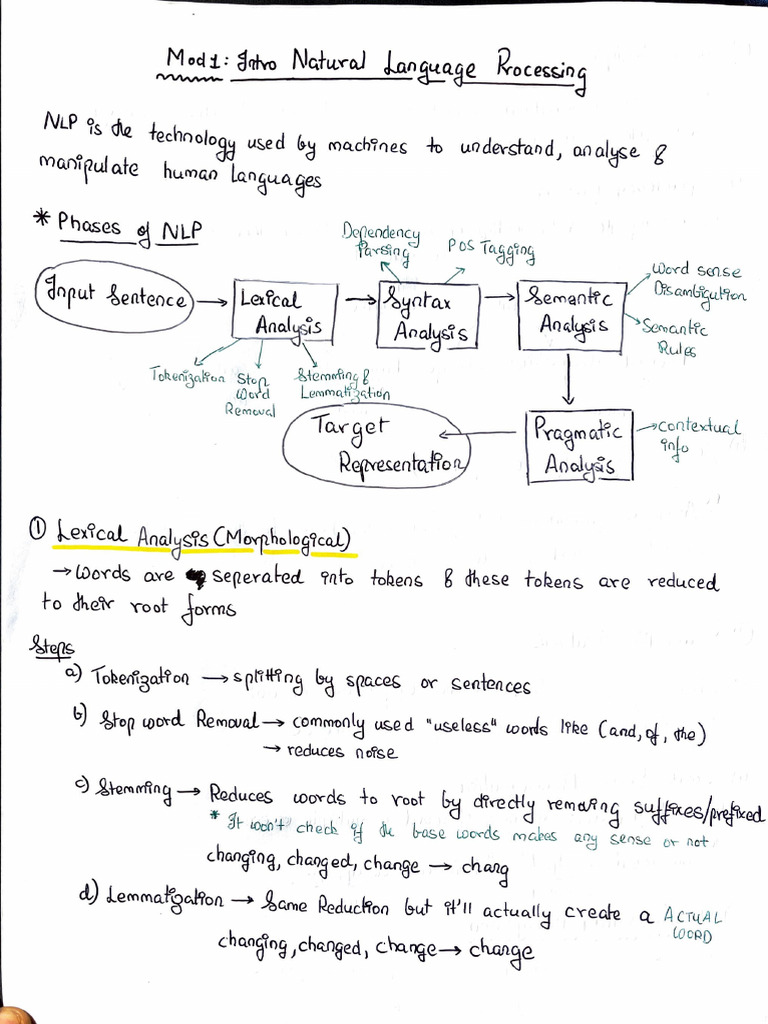 Mod1: Intro Natural Language Processing
NLP is the technology used by machines to understand, analyse &
manipulate human languages
* Phases of NLP
Dependency
Parsing
POS Tagging
Input Sentence
Lexical
Analysis
Syntax
Analysis
Semantic
Analysis
Word sense
Disambigution
Semantic
Rules
Tokenization
Stop
Word
Removal
Stemming &
Lemmatization
Target
Representation
Pragmatic
Analysis
contextual
info
① Lexical Analysis (Morphological)
→ Words are seperated into tokens & these tokens are reduced
to their root forms
Steps
a) Tokenization → splitting by spaces or sentences
b) Stop word Removal → commonly used "useless" words like (and, of, the)
→ reduces noise
c) Stemming → Reduces words to root by directly removing suffixes/prefixed
* It won't check if the base words makes any sense or not
changing, changed, change → chang
d) Lemmatization → Same Reduction but it'll actually create a ACTUAL
WORD
changing, changed, change → change